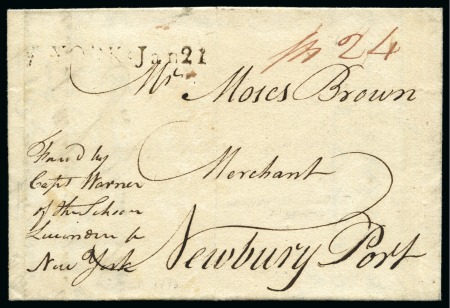 N*YORK*Jan 21
24
Mr. Moses Brown
Merchant
Newbury Port
Favd by
Capt Warner
of the Schoon
New York